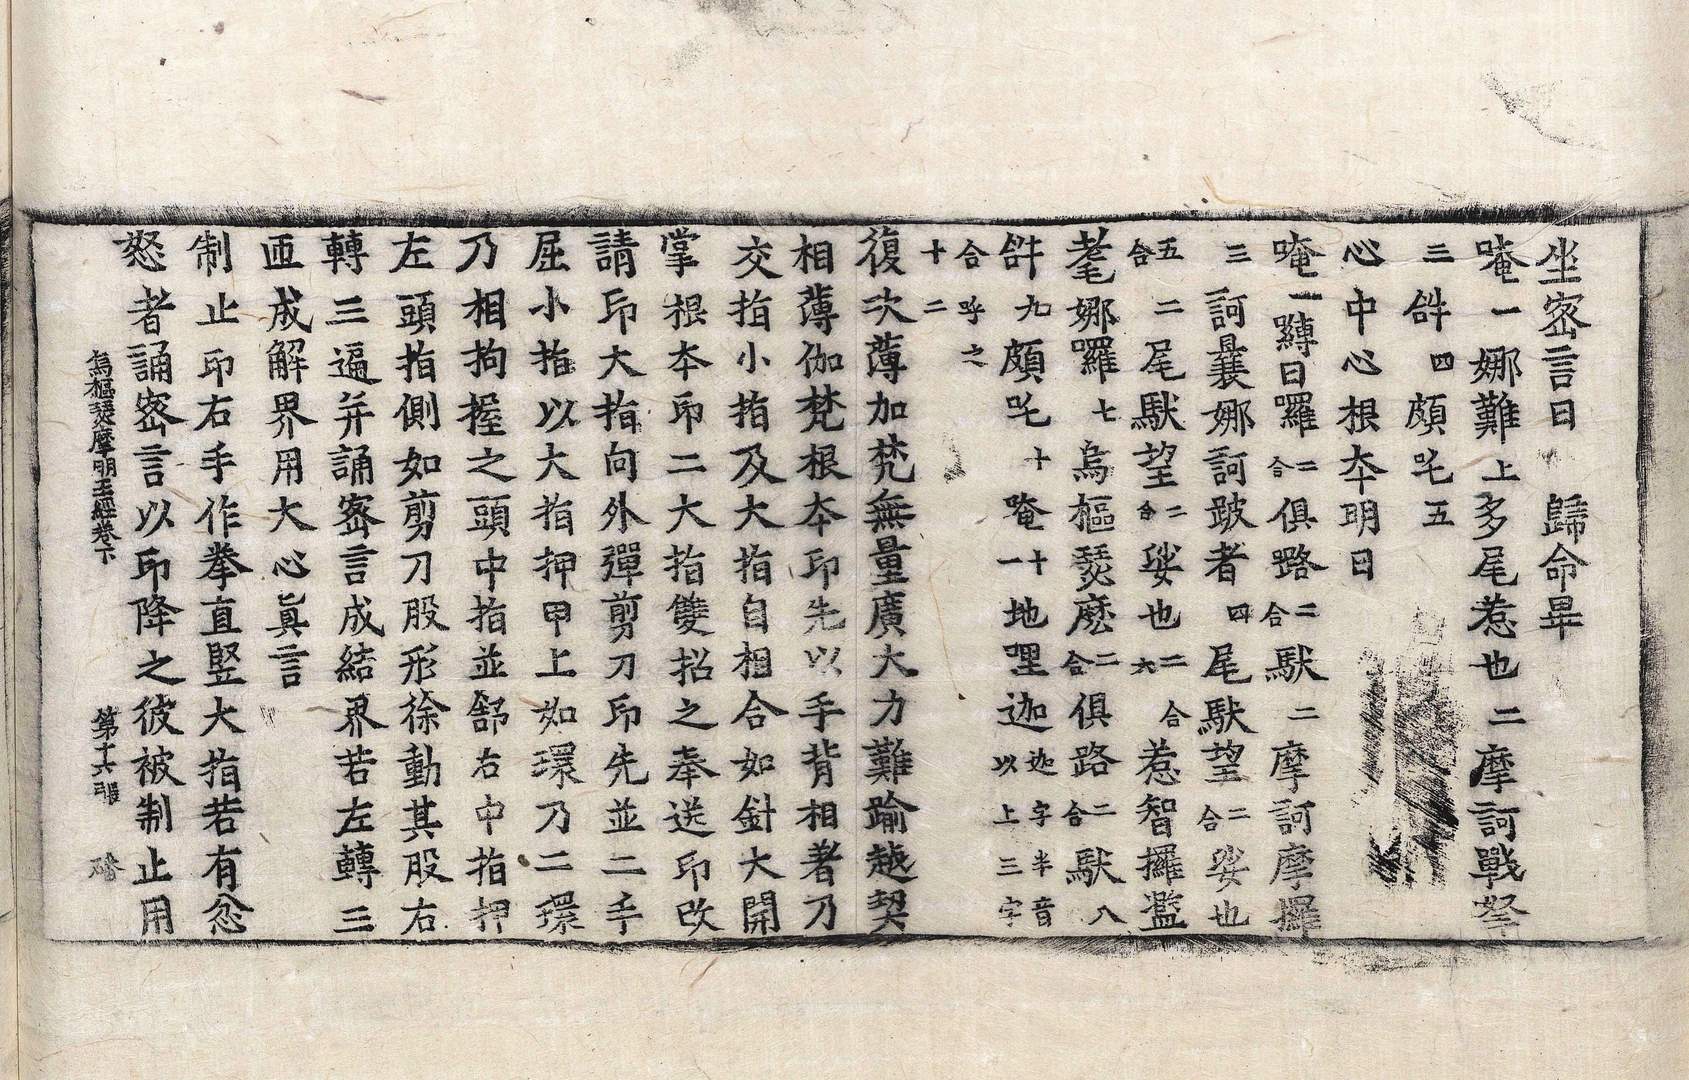 坐密言曰　歸命畢
唵一娜難上多尾惹也二摩訶戰拏
三𤙖四頗吒五
心中心根本明曰
唵一縛日囉二合俱路二合馱二摩訶摩攞
三訶曩娜訶跛者四尾馱望二合娑也
五二合尾馱望二合娑也二合六惹智攞濫
耄娜囉七烏樞瑟麼二合俱路二合馱八
𤙖九頗吒十唵十一地哩迦迦字半音以上三字
合呼之十二
復次薄加梵無量廣大力難踰越契
相薄伽梵根本印先以手背相著乃
交指小指及大指自相合如針大開
掌根本印二大指雙招之奉送印改
請印大指向外彈剪刀印先並二手
屈小指以大指押甲上如環乃二環
乃相拘握之頭中指並舒右中指押
左頭指側如剪刀股形徐動其股右
轉三遍并誦密言成結界若左轉三
匝成解界用大心真言
制止印右手作拳直竪大指若有忿
怒者誦密言以印降之彼被制止用
烏樞瑟摩明王經卷下　第十六張　磻